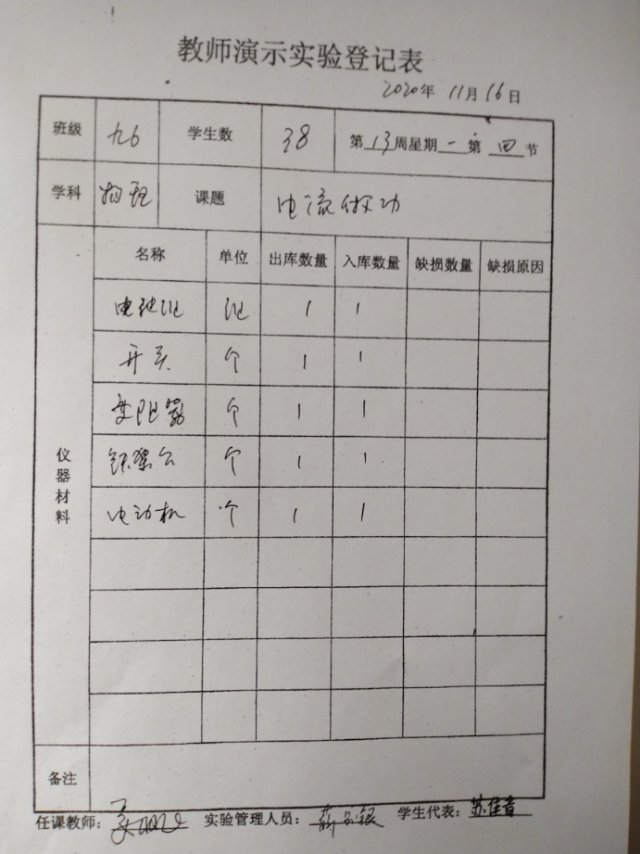 教师演示实验登记表
2020年 11月16日
班级 九6 学生数 38 第 13 周星期 一 第 四 节
学科 物理 课题 电流做功
仪器材料 名称 单位 出库数量 入库数量 缺损数量 缺损原因
电池组 组 1 1
开关 个 1 1
变阻器 个 1 1
铁架台 个 1 1
电动机 个 1 1
备注
任课教师: 实验管理人员: 学生代表: 苏佳音